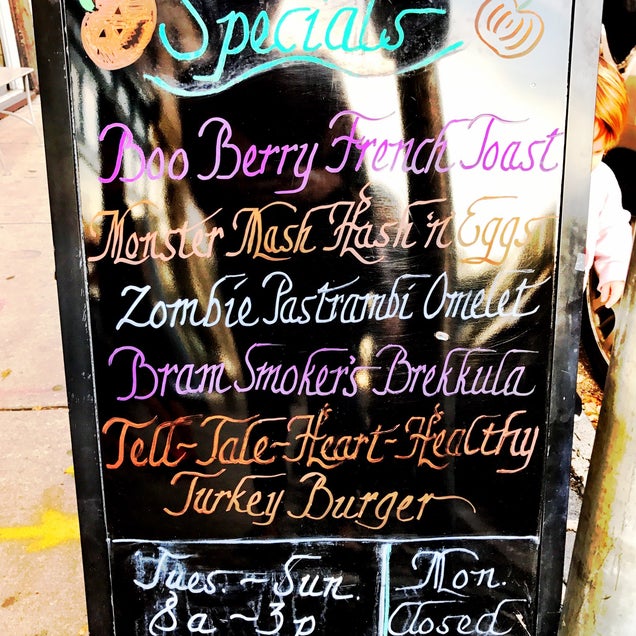 Specials
Boo Berry French Toast
Monster Mash Hash 'n Eggs
Zombie Pastrambi Omelet
Bram Smoker's Brekkula
Tell-Tale-Heart-Healthy
Turkey Burger
Tues. ~ Sun.
8a ~ 3p
Mon.
Closed